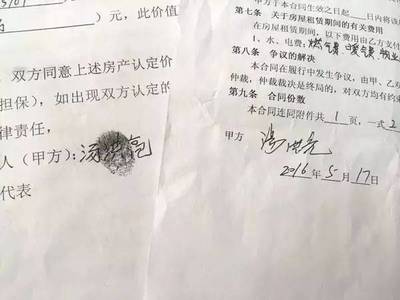 ）元，此价值
双方同意上述房产认定价
担保），如出现双方认定的
律责任，
人（甲方）：汤洪亮
代表
甲方于本合同生效之日起　日内将该
第七条　关于房屋租赁期间的有关费用
在房屋租赁期间，以下费用由乙方支付
1、水、电费；燃气费 暖气费 物业
第八条　争议的解决
本合同在履行中发生争议，由甲、乙
仲裁，仲裁裁决是终局的，对双方均有约束
第九条　合同份数
本合同连同附件共 1 页，一式 2
甲方 汤洪亮
2016 年 5 月 17 日